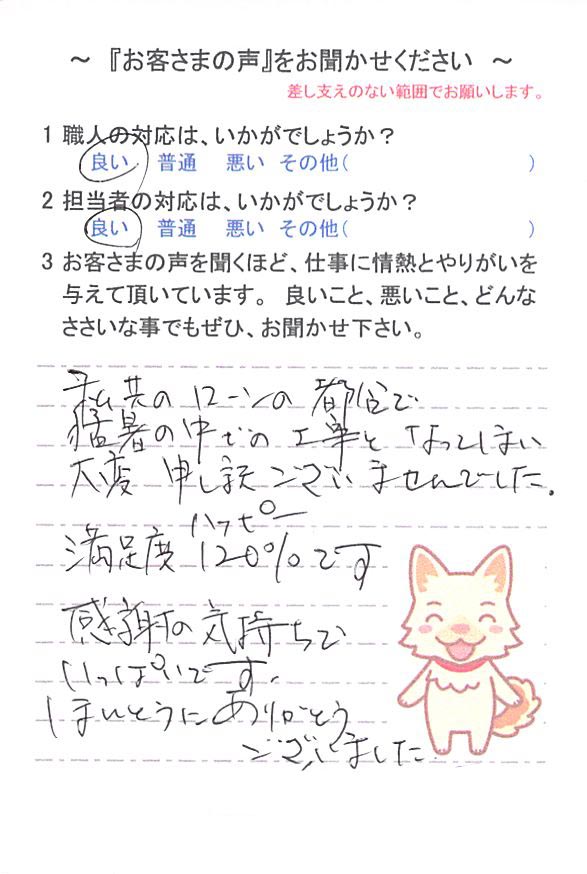 ～ 『お客さまの声』をお聞かせください ～
差し支えのない範囲でお願いします。
1 職人の対応は、いかがでしょうか？
良い 普通 悪い その他( )
2 担当者の対応は、いかがでしょうか？
良い 普通 悪い その他( )
3 お客さまの声を聞くほど、仕事に情熱とやりがいを
与えて頂いています。 良いこと、悪いこと、どんな
ささいな事でもぜひ、お聞かせ下さい。
私共のローンの都合で
猛暑の中での工事となってしまい
大変申し訳ございませんでした.
満足度 120%です
感謝の気持ちで
いっぱいです.
ほんとうにありがとう
ございました